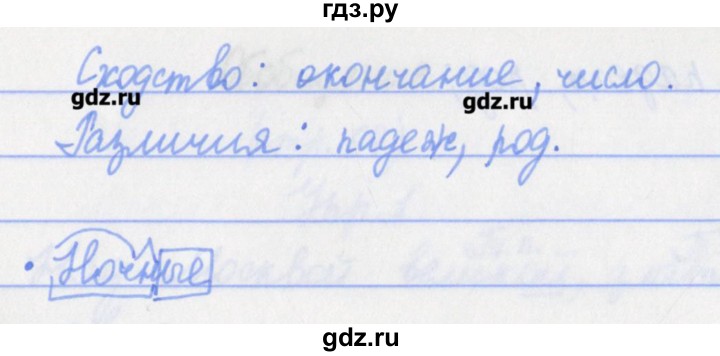 гдз.ру
Сходство: окончание, число.
gdz.ru
gdz.ru
Различия: падеж, род.
• Ночные
gdz.ru